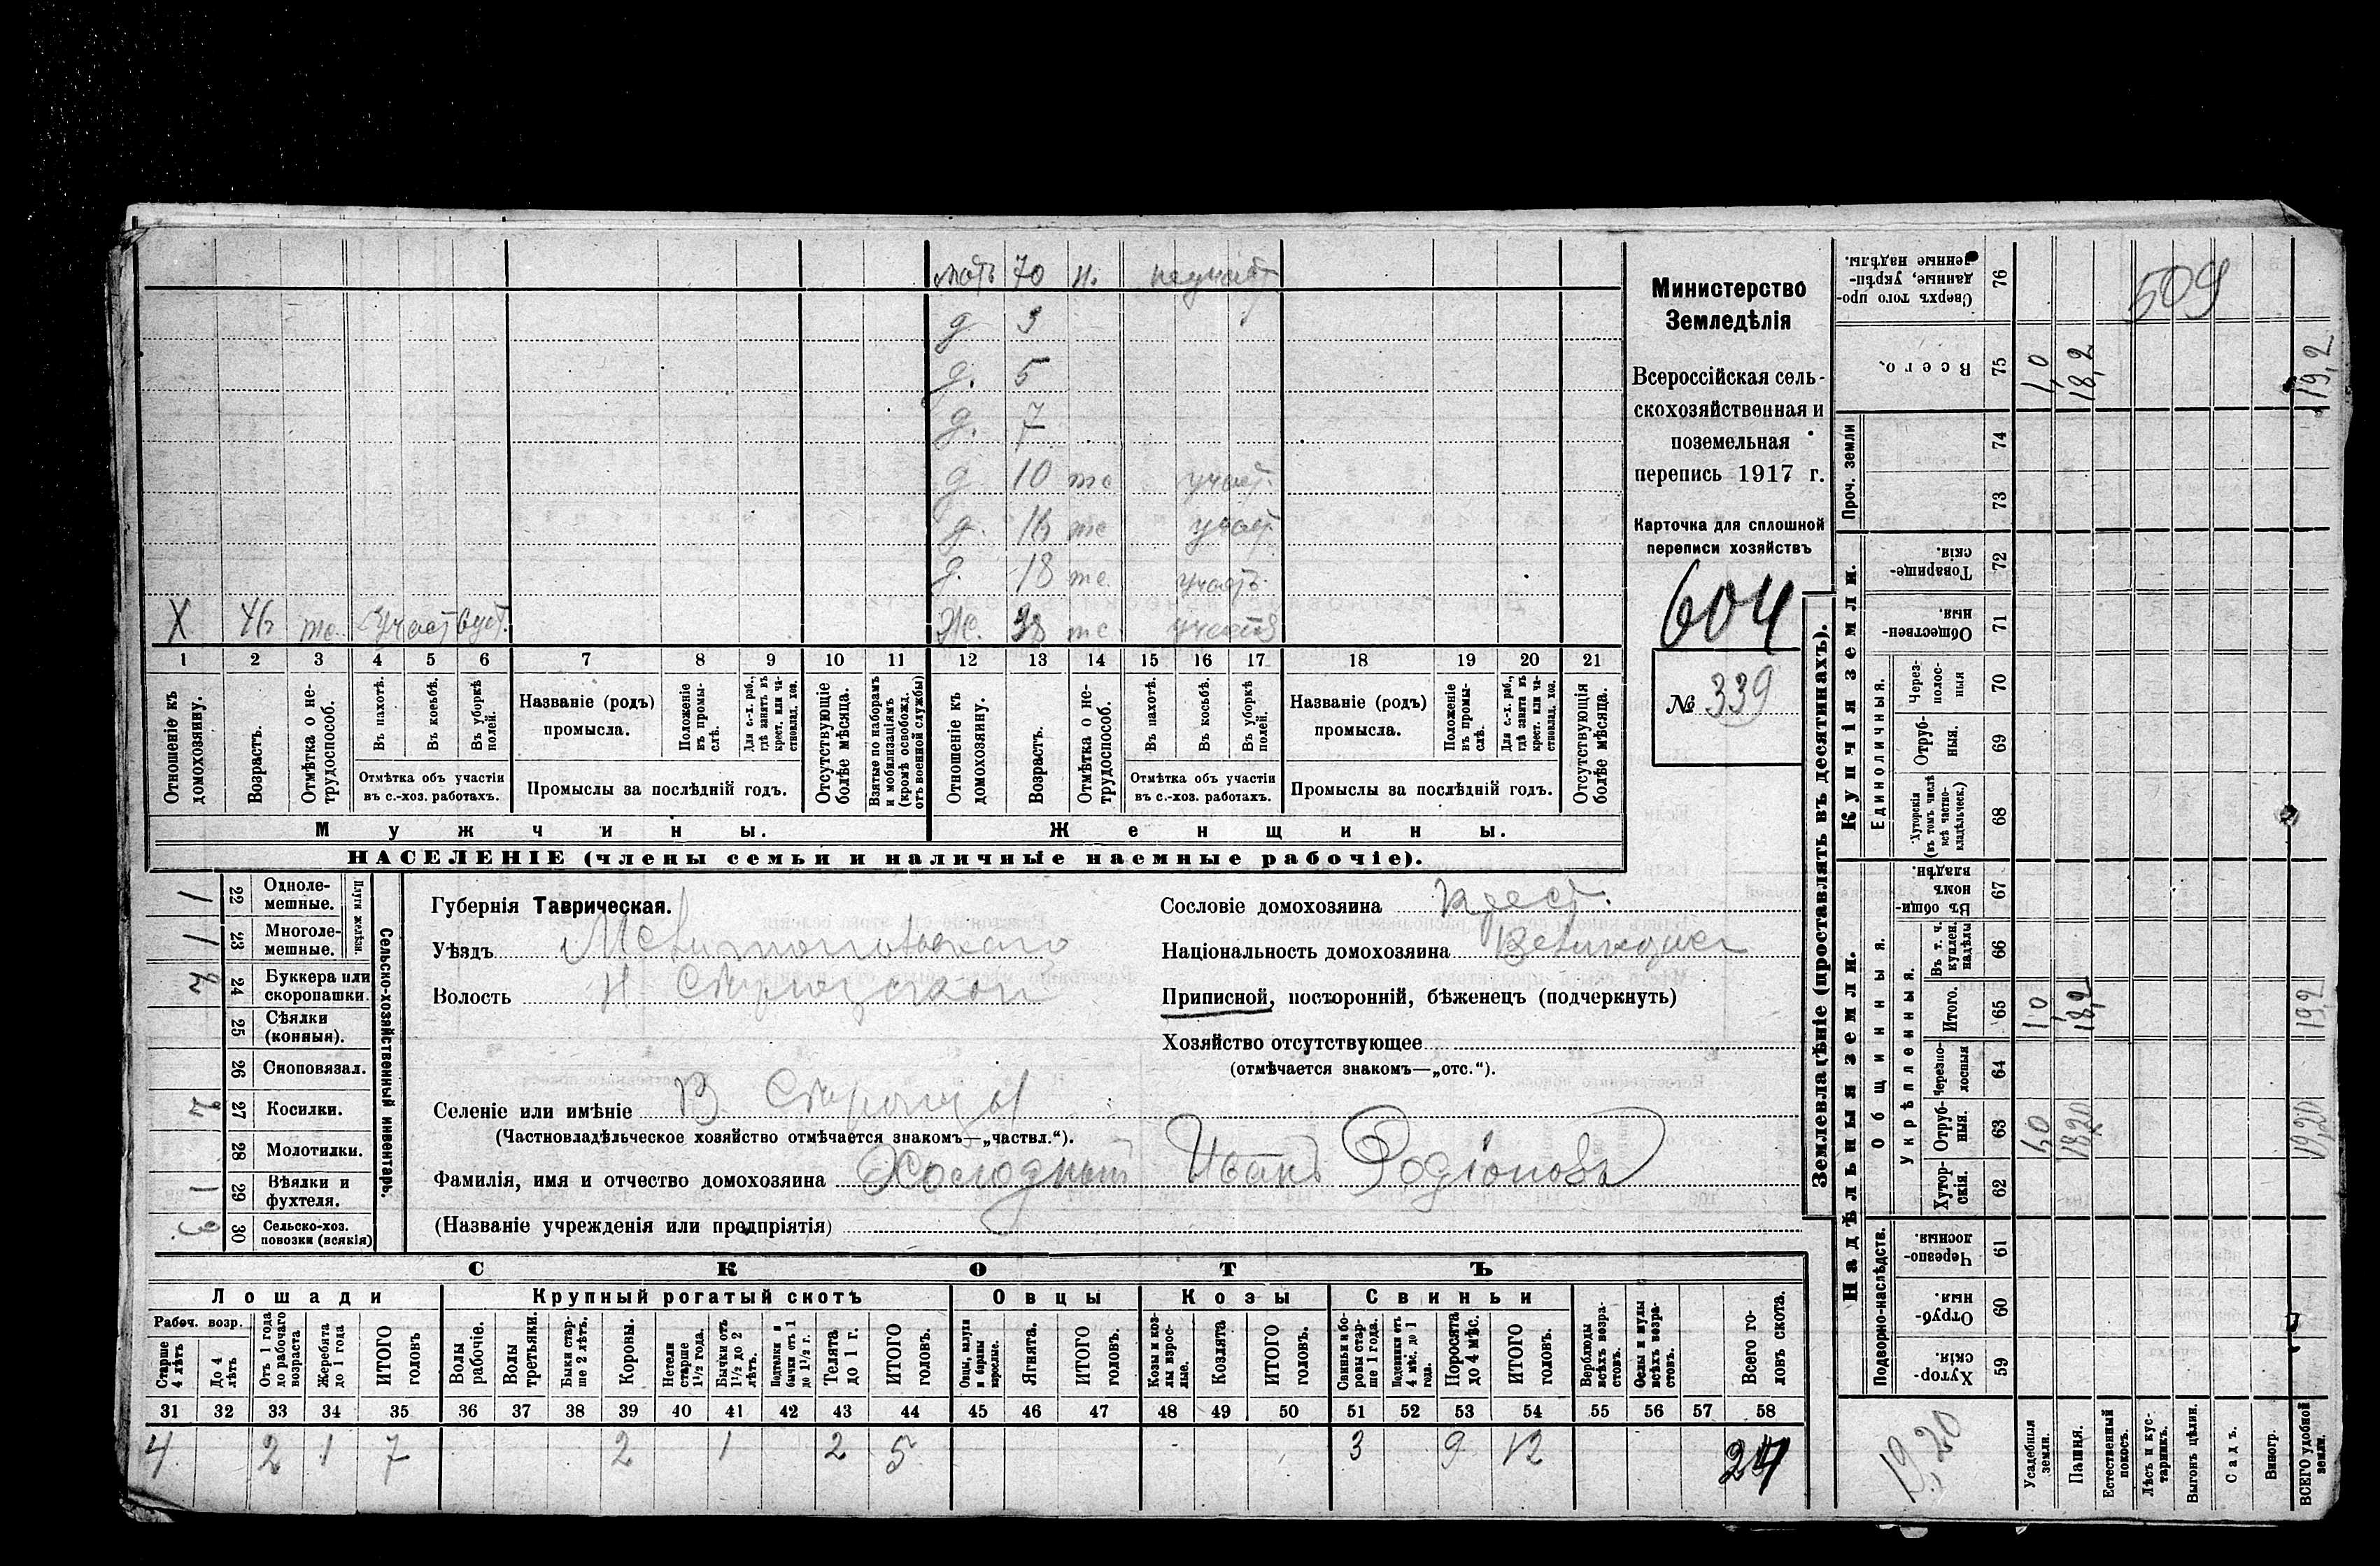 мать 70 н. неучаст
д 3
д. 5
д. 7
д 10 те участ.
д. 16 те участ.
д. 18 те. участ.
Х 46 те. Участвует. Ж. 38 те участв
1 2 3 4 5 6 7 8 9 10 11 12 13 14 15 16 17 18 19 20 21
Отношеніе къ домохозяину.
Возрастъ.
Отмѣтка о нетрудоспособ.
Въ пахотѣ.
Въ косьбѣ.
Въ уборкѣ полей.
Отмѣтка объ участіи въ с.-хоз. работахъ.
Названіе (родъ) промысла.
Положеніе въ промыслѣ.
Для с.-х. раб., гдѣ занятъ въ крест. или частновлад. хоз.
Промыслы за послѣдній годъ.
Отсутствующіе болѣе мѣсяца.
Взятые по наборамъ и мобилизаціямъ (кромѣ освобожд. отъ военной службы)
Отношеніе къ домохозяину.
Возрастъ.
Отмѣтка о нетрудоспособ.
Въ пахотѣ.
Въ косьбѣ.
Въ уборкѣ полей.
Отмѣтка объ участіи въ с.-хоз. работахъ.
Названіе (родъ) промысла.
Положеніе въ промыслѣ.
Для с.-х. раб., гдѣ занята въ крест. или частновлад. хоз.
Промыслы за послѣдній годъ.
Отсутствующія болѣе мѣсяца.
Мужчины. Женщины.
НАСЕЛЕНІЕ (члены семьи и наличные наемные рабочіе).
Министерство
Земледѣлія
Всероссійская сель-
скохозяйственная и
поземельная
перепись 1917 г.
Карточка для сплошной
переписи хозяйствъ
604
№ 339
Сельско-хозяйственный инвентарь.
Плуги желѣзн.
1 22 Одноле-
мешные.
1 23 Многоле-
мешные.
2 24 Буккера или
скоропашки.
25 Сѣялки
(конныя).
26 Сноповязал.
2 27 Косилки.
28 Молотилки.
1 29 Вѣялки и
фухтеля.
3 30 Сельско-хоз.
повозки (всякія)
Губернія Таврическая.
Уѣздъ Мелитопольскаго
Волость
Селеніе или имѣніе В.
(Частновладѣльческое хозяйство отмѣчается знакомъ—„частвл.“).
Фамилія, имя и отчество домохозяина Холодный Иванъ Родіоновъ
(Названіе учрежденія или предпріятія)
Сословіе домохозяина крест.
Національность домохозяина
Приписной, посторонній, бѣженецъ (подчеркнуть)
Хозяйство отсутствующее
(отмѣчается знакомъ—„отс.“).
СКОТЪ
Лошади Крупный рогатый скотъ Овцы Козы Свиньи
Рабоч. возр.
Старше 4 лѣтъ
До 4 лѣтъ
Отъ 1 года до рабочаго возраста
Жеребята до 1 года
ИТОГО головъ
Волы рабочіе.
Волы третьяки.
Быки старше 2 лѣтъ.
Коровы.
Нетели старше 1½ года.
Бычки отъ 1½ до 2 лѣтъ.
Подтелки и бычки отъ 1 до 1½ г.
Телята до 1 г.
ИТОГО головъ.
Овцы, валухи и бараны взрослые.
Ягнята.
ИТОГО головъ.
Козы и козлы взрослые.
Козлята
ИТОГО головъ.
Свиньи и боровы старше 1 года.
Подсвинки отъ 4 мѣс. до 1 года.
Поросята до 4 мѣс.
ИТОГО головъ.
Верблюды всѣхъ возрастовъ.
Ослы и мулы всѣхъ возрастовъ.
Всего головъ скота.
31 32 33 34 35 36 37 38 39 40 41 42 43 44 45 46 47 48 49 50 51 52 53 54 55 56 57 58
4 2 1 7 2 1 2 5 3 9 12 24
Землевладѣніе (проставлять въ десятинахъ).
Надѣльныя земли. Купчія земли. Проч. земли
Подворно-наслѣдств.
Общинныя.
Укрѣпленныя.
Единоличныя.
59 Хуторскія
60 Отрубныя.
61 Черезполосныя.
62 Хуторскія.
63 Отрубныя.
64 Черезполосныя
65 Итого.
66 Въ т. ч. куплен. надѣлы
67 Въ общинномъ владѣн.
68 Хуторскія (въ томъ числѣ всѣ частновладѣльческ.)
69 Отрубныя.
70 Черезполосныя
71 Общественныя
72 Товарищескія.
73
74
75 Всего.
76 Сверхъ того проданные, укрѣпленные надѣлы.
Усадебныя земли. 1,0 1,0 1,0
Пашня. 18,20 18,2 18,2
Естественный покосъ.
Лѣсъ и кустарникъ.
Выгонъ цѣлин.
Садъ.
Виногр.
ВСЕГО удобной земли. 19,20 19,2 19,2
19,20
509